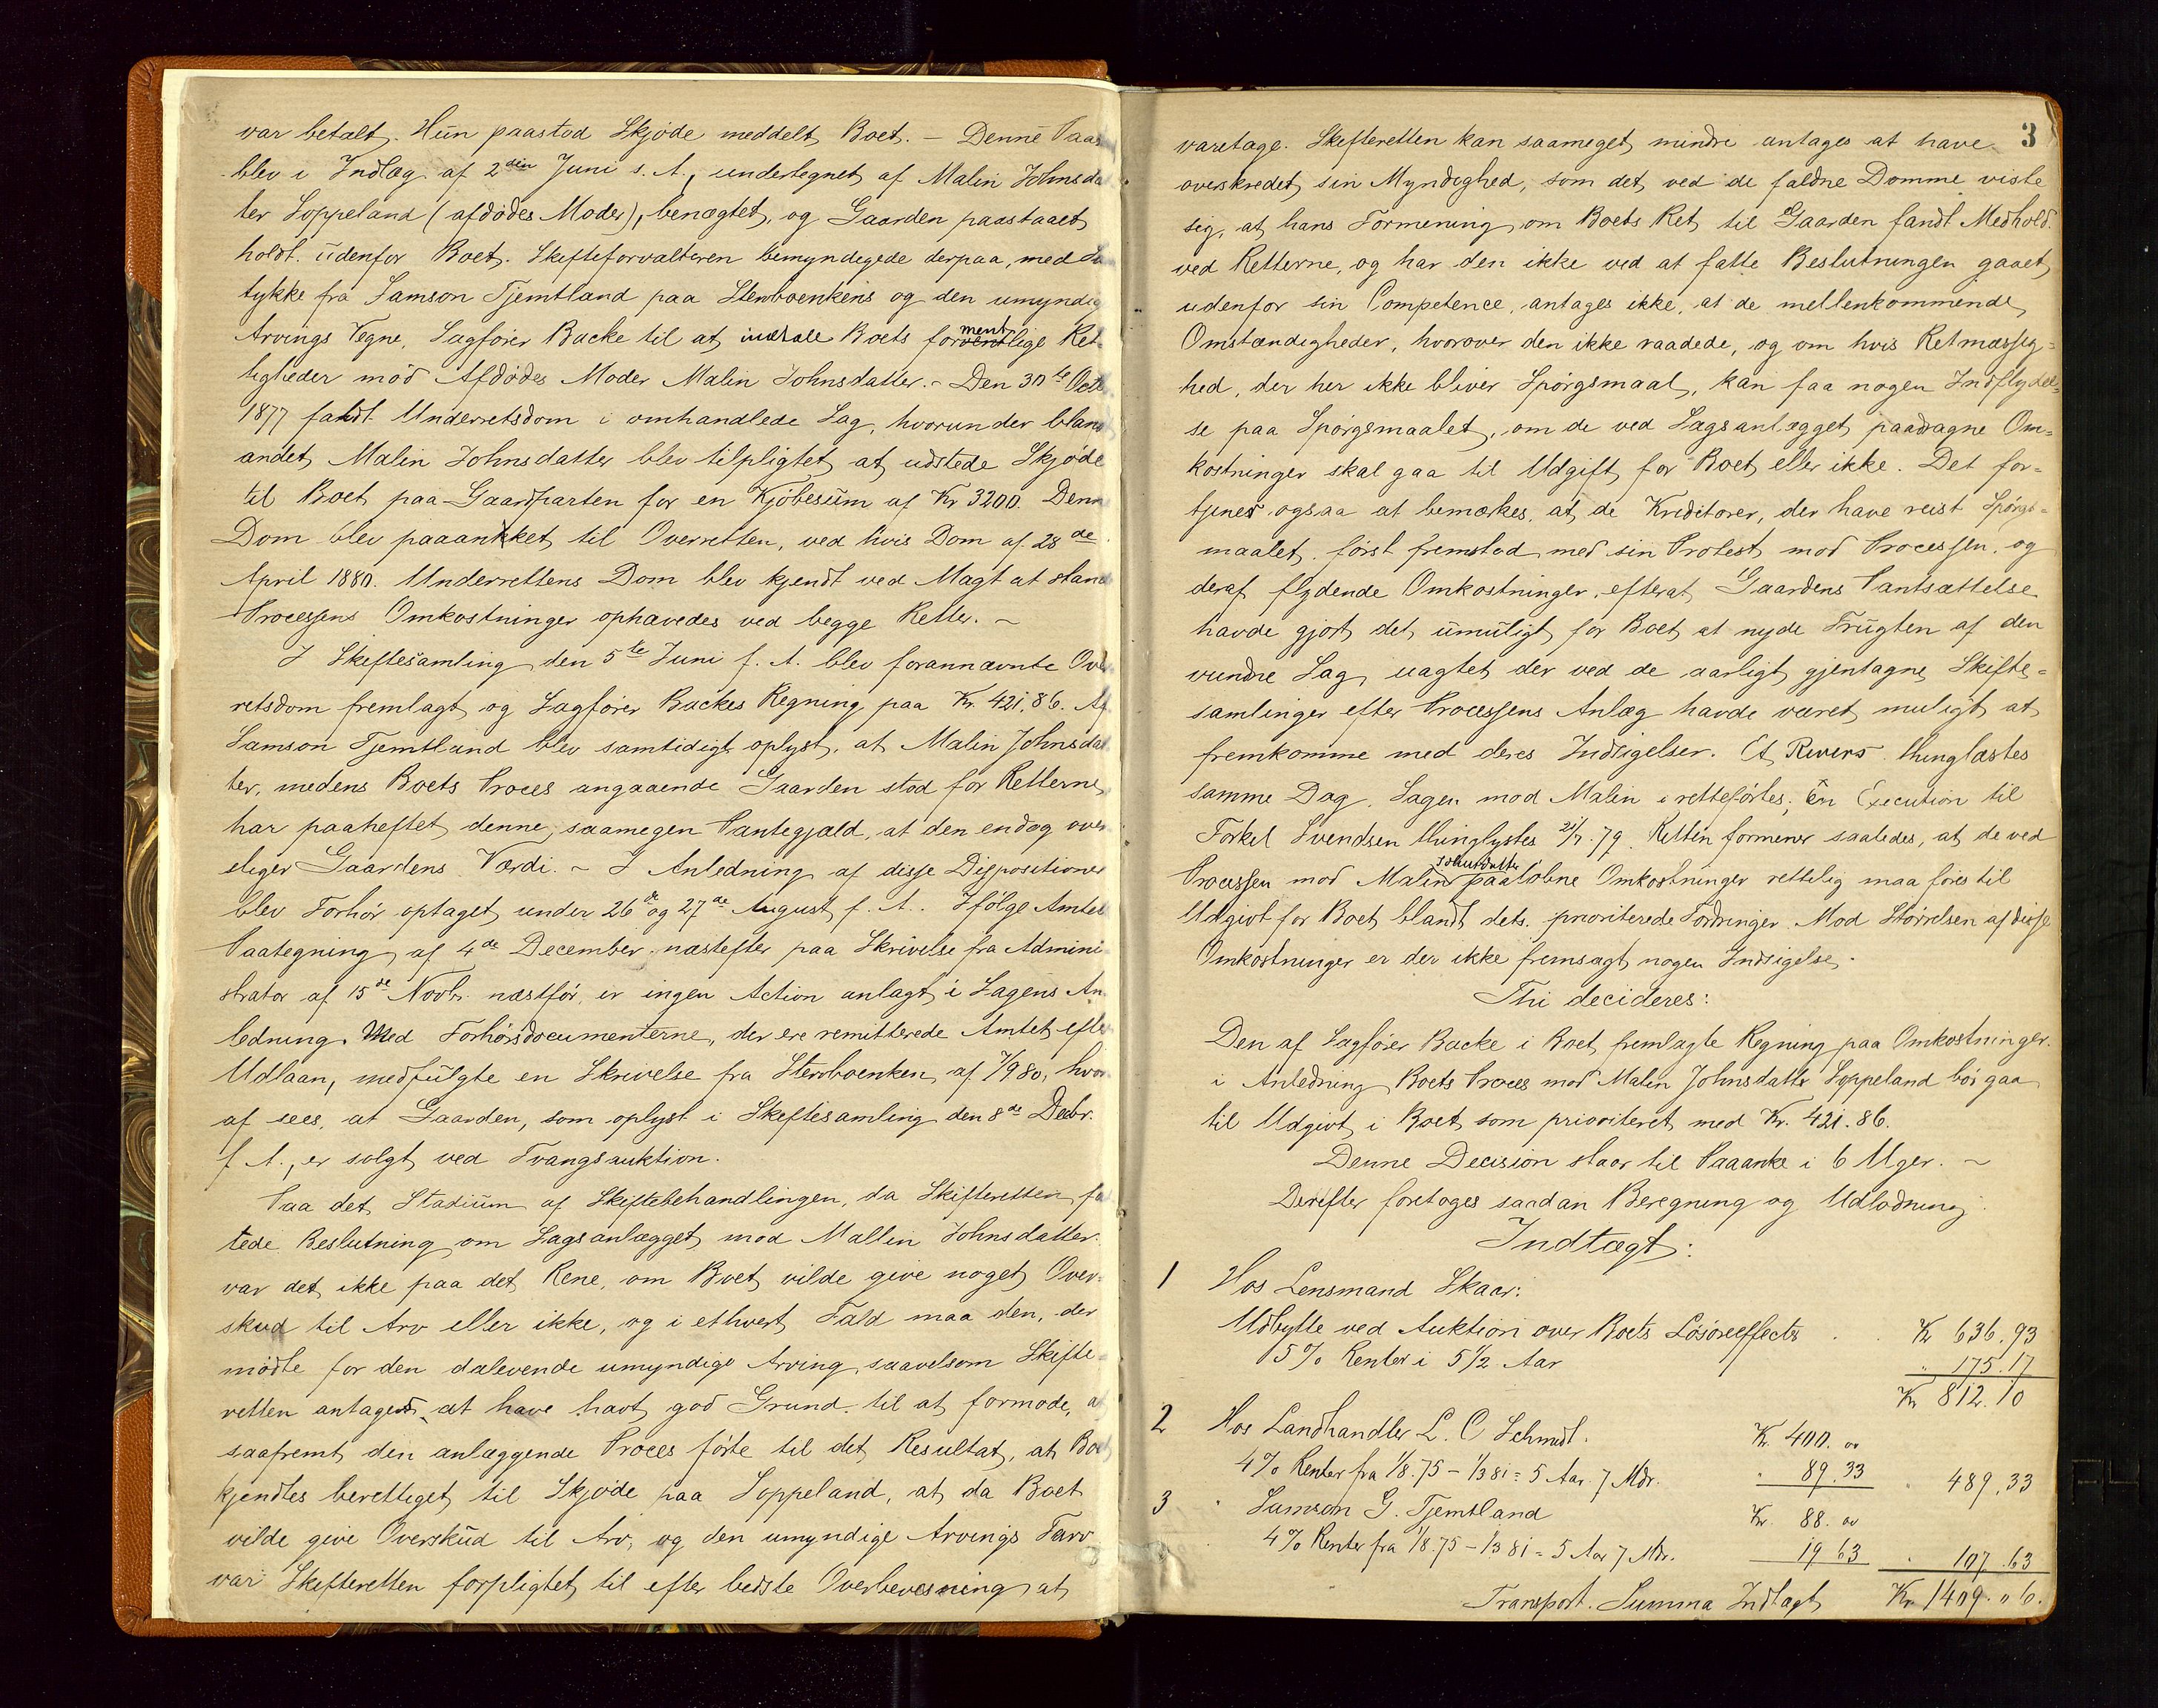 var betalt. Hun paastod Skjøde meddelt Boet. – Denne Paas
blev i Indlæg af 2den Juni s. A., undertegnet af Malin Johnsda
ter Soppeland (afdødes Moder), benægtet, og Gaarden paastaaet
holdt udenfor Boet. Skifteforvalteren bemyndigede derpaa, med Sa
tykke fra Samson Tjemtland paa Sterboenkens og den umyndig
Arvings Vegne, Sagfører Backe til at indtale Boets formentlige Ret-
tigheder mod Afdødes Moder Malin Johnsdatter. – Den 30te Octb
1877 faldt Underretsdom i omhandlede Sag, hvorunder bland
andet Malin Johnsdatter blev tilpligtet at udstede Skjøde
til Boet paa Gaardparten for en Kjøbesum af Kr 3200. Denn
Dom blev paaanket til Overretten, ved hvis Dom af 28de
April 1880. Underrettens Dom blev kjendt ved Magt at stand
Processens Omkostninger ophævedes ved begge Retter. –
I Skiftesamling den 5te Juni f. A. blev forannævnte Over
retsdom fremlagt og Sagfører Backes Regning paa Kr. 421,86. Af
Samson Tjemtland blev samtidigt oplyst, at Malin Johnsdat
ter, medens Boets Proces angaaende Gaarden stod for Retterne,
har paaheftet denne saamegen Pantegjæld, at den endog over
stiger Gaardens Værdi. – I Anledning af disse Dispositioner
blev Forhør optaget under 26de og 27de August f. A.. Ifølge Amtet
Paategning af 4de December næstefter paa Skrivelse fra Admini-
strator af 15de Novbr. næstfør, er ingen Action anlagt i Sagens An-
ledning. Med Forhørsdocumenterne, der ere remitterede Amtet efter
Udlaan, medfulgte en Skrivelse fra Sterboenken af 7/9 80, hvor
af sees, at Gaarden, som oplyst i Skiftesamling den 8de Decbr.
f. A., er solgt ved Tvangsauktion.
Paa det Stadium af Skiftebehandlingen, da Skifteretten fa
tede Beslutning om Sagsanlægget mod Mallin Johnsdatter
var det ikke paa det Rene, om Boet vilde give noget Over-
skud til Arv eller ikke, og i ethvert Fald maa den, der
mødte for den dalevende umyndige Arving, saavelsom Skifte-
retten antages at have havt god Grund til at formode, a
saafremt den anlæggende Proces førte til det Resultat, at Boet
kjendtes berettiget til Skjøde paa Soppeland, at da Boet
vilde give Overskud til Arv, og den umyndige Arvings Tarv
var Skifteretten forpligtet til efter bedste Overbevisning at
3
varetage. Skifteretten kan saameget mindre antages at have
overskredet sin Myndighed, som det ved de faldne Domme viste
sig, at hans Formening om Boets Ret til Gaarden fandt Medhold
ved Retterne, og har den ikke ved at fatte Beslutningen gaaet
udenfor sin Competence, antages ikke, at de mellemkommende
Omstændigheder, hvorover den ikke raadede, og om hvis Retmæssig=
hed, der her ikke bliver Spørgsmaal, kan faa nogen Indflydel=
se paa Spørgsmaalet, om de ved Sagsanlægget paadragne Om=
kostninger skal gaa til Udgift for Boet eller ikke. Det for=
tjener ogsaa at bemærkes, at de Kreditorer, der have reist Spørgs=
maalet, først fremstod med sin Protest mod Processen og
deraf flydende Omkostninger, efterat Gaardens Pantsættelse
havde gjort det umuligt for Boet at nyde Frugten af den
vundne Sag, uagtet der ved de aarligt gjentagne Skifte=
samlinger efter Processens Anlæg havde været muligt at
fremkomme med deres Indsigelser. Et Revers thinglæstes
samme Dag, Sagen mod Malin iretteførtes; En Execution til
Torkel Svendsen thinglystes 21/7. 79. Retten formener saaledes, at de ved
Processen mod Malin Johnsdatter paaløbne Omkostninger rettelig maa føres til
Udgivt for Boet blandt dets prioriterede Fordringer. Mod Størrelsen af disse
Omkostninger er der ikke fremsagt nogen Indsigelse.
Thi decideres:
Den af Sagfører Backe i Boet fremlagte Regning paa Omkostninger
i Anledning Boets Proces mod Malin Johnsdatter Soppeland bør gaa
til Udgivt i Boet som prioriteret med Kr. 421.86.
Denne Decision staar til Paaanke i 6 Uger. –
Derefter foretoges saadan Beregning og Udlodning:
Indtægt:
1 Hos Lensmand Skaar:
Udbytte ved Auktion over Boets Løsøreeffecter . . Kr 636.93
5% Renter i 5 1/2 Aar " 175.17
Kr 812.10
2 Hos Landhandler L. C Schmidt. Kr. 400. oo
4% Renter fra 1/8.75 – 1/3 81 = 5 Aar 7 Mdr. " 89.33 " 489.33
3 " Samson G. Tjemtland Kr. 88. oo
4% Renter fra 1/8.75 – 1/3 81 = 5 Aar 7 Mdr. 19 63 " 107.63
Transport. Summa Indtægt Kr 1409. o6.